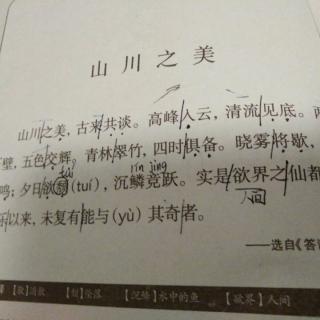 山川之美
山川之美，古来共谈。高峰入云，清流见底。
壁，五色交辉 青林翠竹，四时俱备。晓雾将歇，
lín jìng
鸣；夕日欲颓(tuí)，沉鳞竞跃。实是欲界之仙都
人间
以来，未复有能与(yù) 其奇者。
——选自《答
【歇】消散 【颓】坠落 【沉鳞】水中的鱼 【欲界】人间